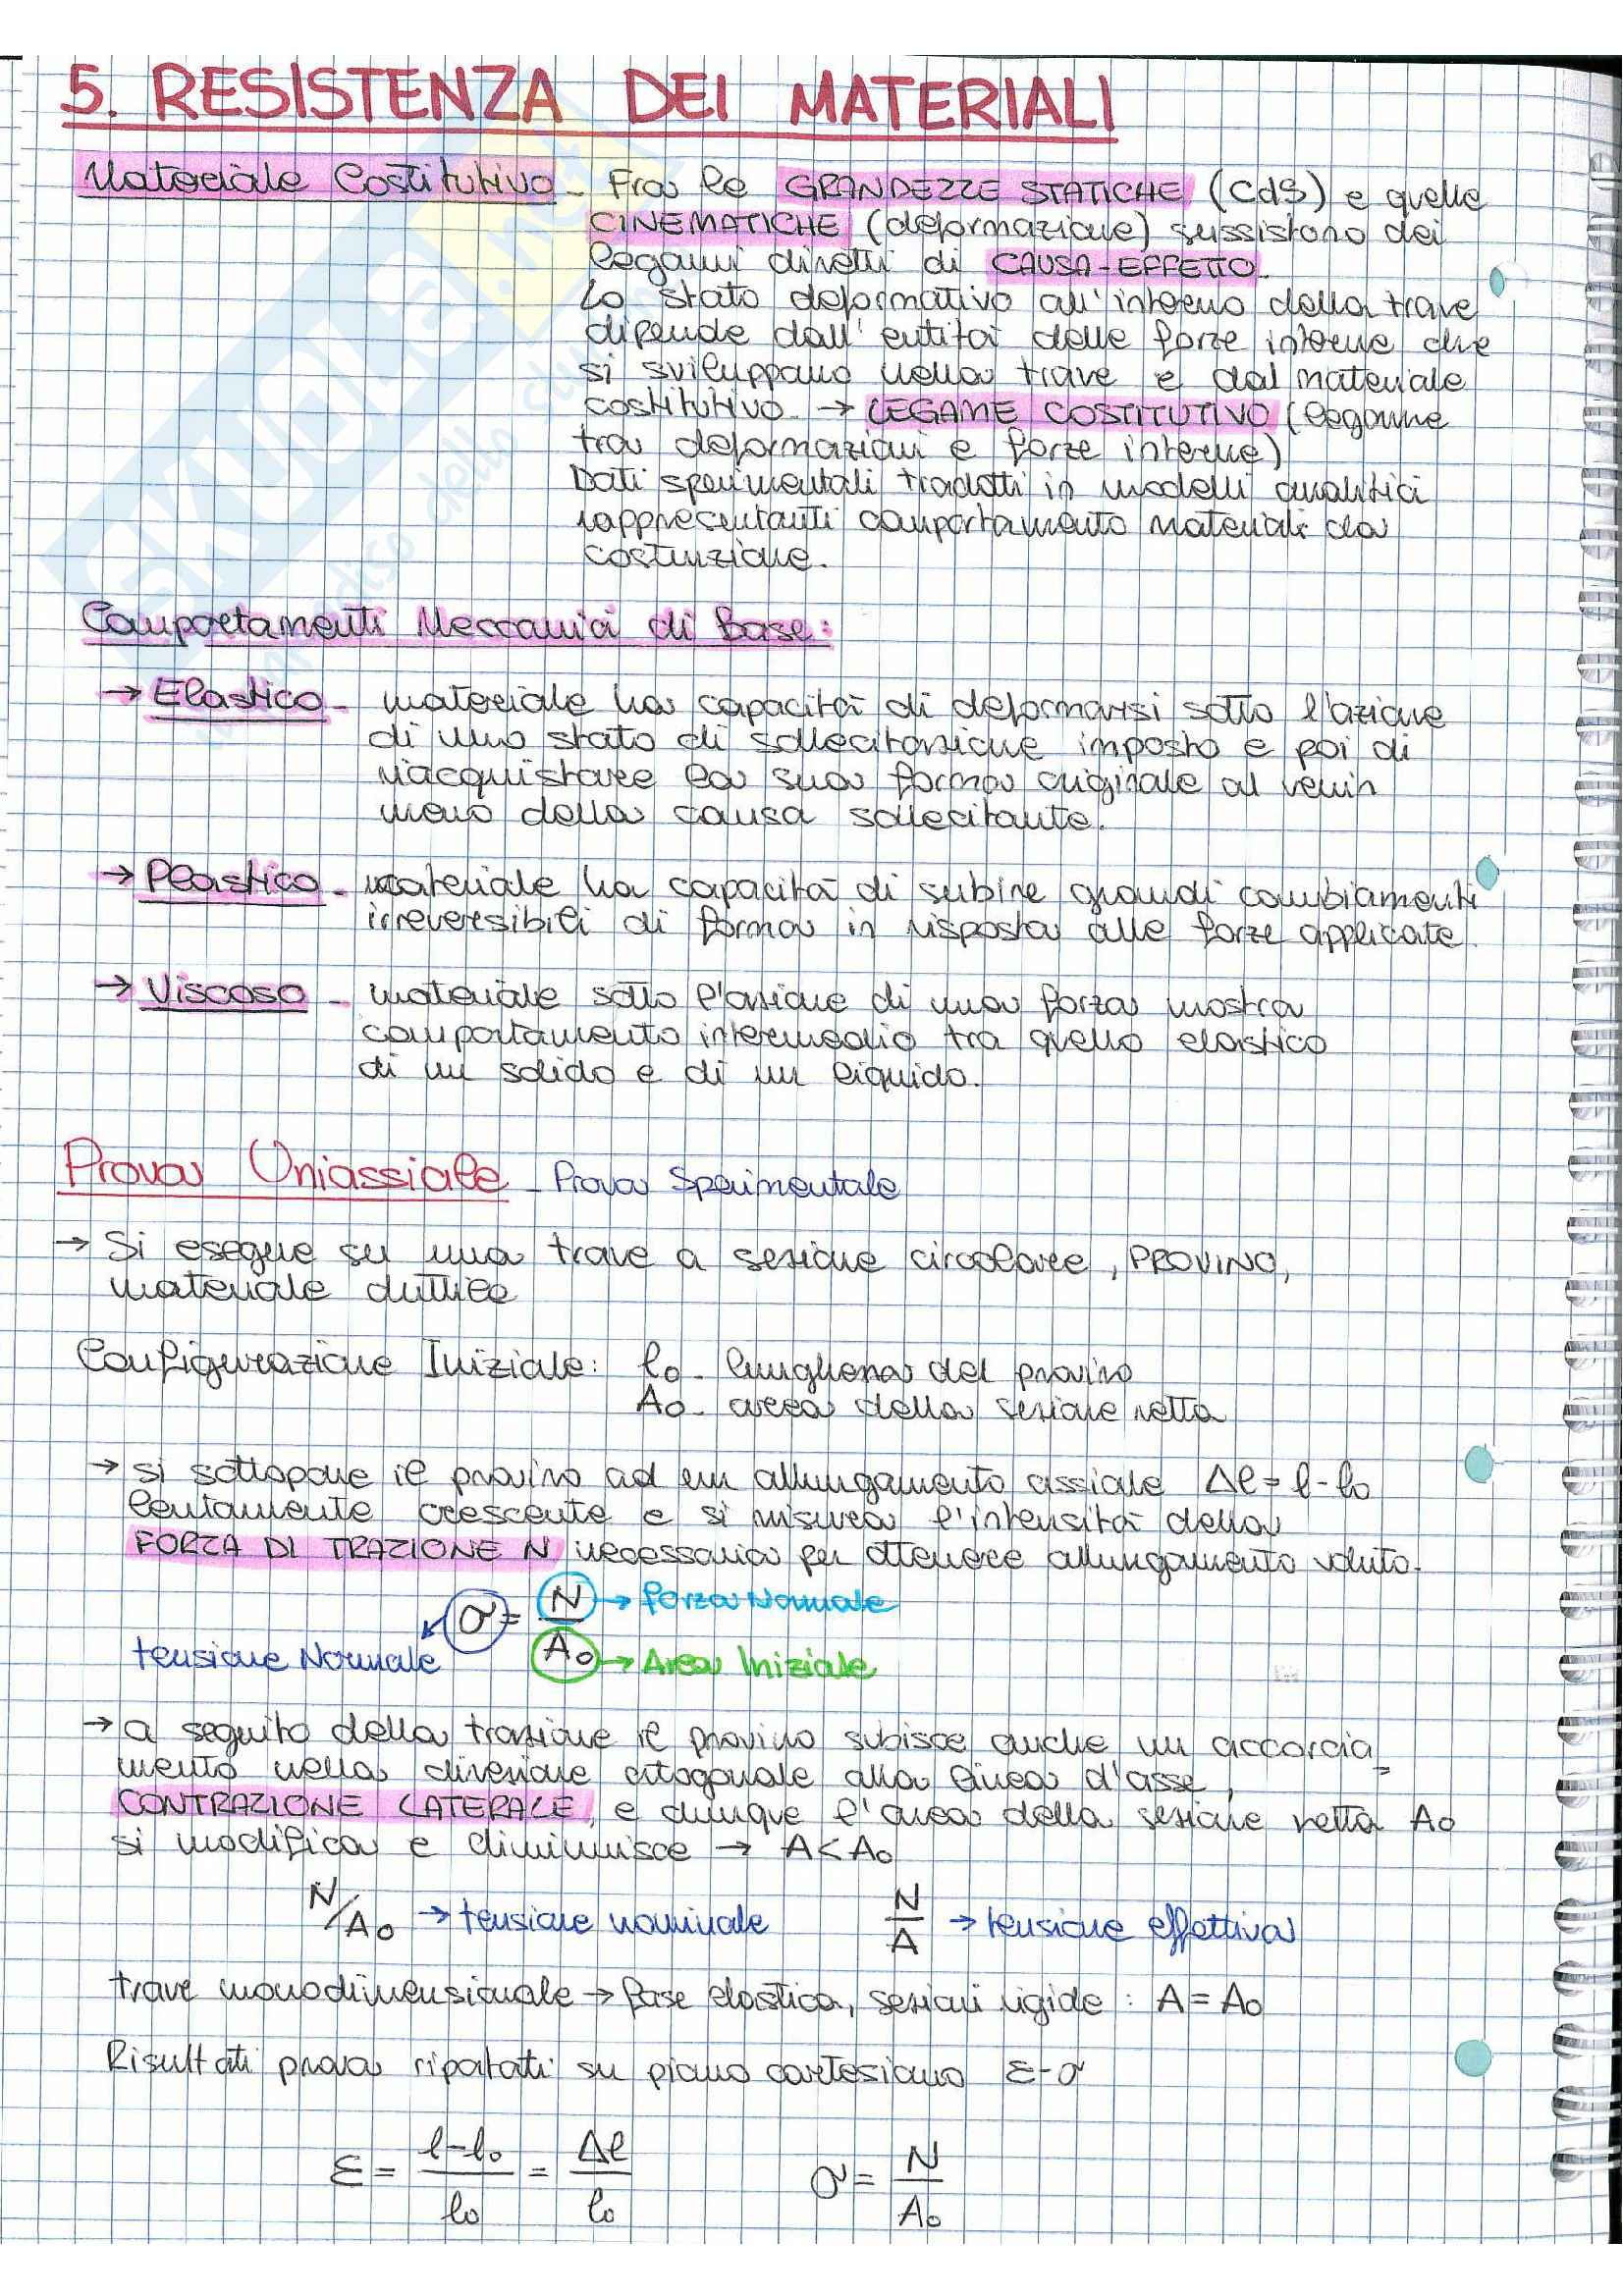 5. RESISTENZA DEI MATERIALI
Materiale Costitutivo - Fra le GRANDEZZE STATICHE (CdS) e quelle
CINEMATICHE (deformazione) sussistono dei
legami diretti di CAUSA-EFFETTO.
Lo stato deformativo all'interno della trave
dipende dall'entità delle forze interne che
si sviluppano nella trave e dal materiale
costitutivo → LEGAME COSTITUTIVO (legame
tra deformazioni e forze interne)
Dati sperimentali tradotti in modelli analitici
rappresentanti comportamento materiali da
costruzione.
Comportamenti Meccanici di Base:
→ Elastico - materiale ha capacità di deformarsi sotto l'azione
di uno stato di sollecitazione imposto e poi di
riacquistare la sua forma originale al venir
meno della causa sollecitante.
→ Plastico - materiale ha capacità di subire grandi cambiamenti
irreversibili di forma in risposta alle forze applicate.
→ Viscoso - materiale sotto l'azione di una forza mostra
comportamento intermedio tra quello elastico
di un solido e di un liquido.
Prova Uniassiale - Prova Sperimentale
→ Si esegue su una trave a sezione circolare, PROVINO,
materiale duttile
Configurazione Iniziale: l₀ - lunghezza del provino
A₀ - area della sezione retta
→ si sottopone il provino ad un allungamento assiale Δl = l - l₀
lentamente crescente e si misura l'intensità della
FORZA DI TRAZIONE N necessaria per ottenere allungamento voluto.
σ = N → forza Normale
tensione Normale A₀ → Area Iniziale
→ a seguito della trazione il provino subisce anche un accorcia
mento nella direzione ortogonale alla linea d'asse,
CONTRAZIONE LATERALE, e dunque l'area della sezione retta A₀
si modifica e diminuisce → A < A₀
N/A₀ → tensione nominale N/A → tensione effettiva
trave monodimensionale → fase elastica, sezioni rigide: A = A₀
Risultati prova riportati su piano cartesiano ε-σ
ε = l-l₀/l₀ = Δl/l₀ σ = N/A₀